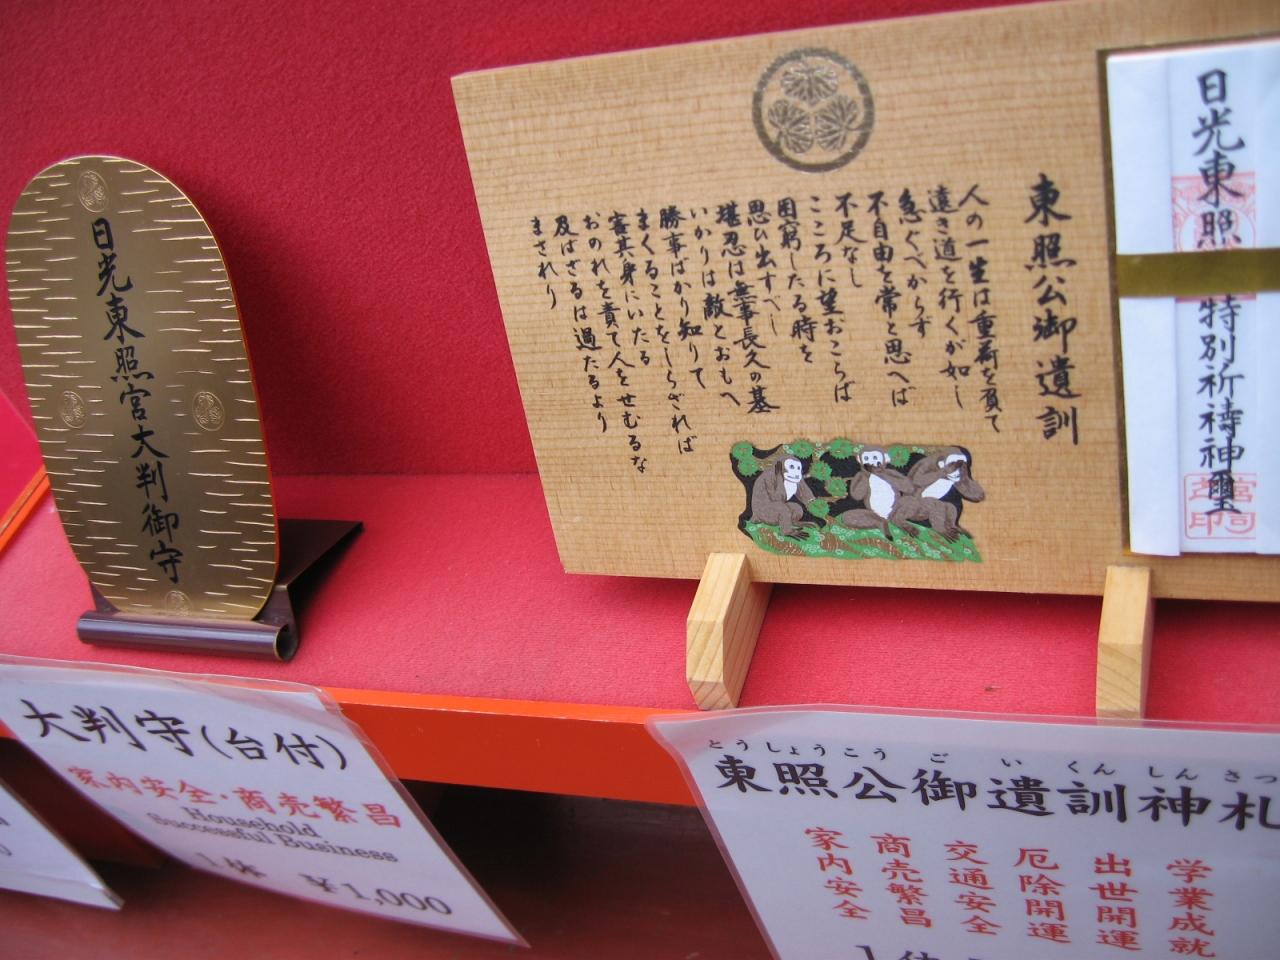 日光東照宮大判御守
東照公御遺訓
人の一生は重荷を負て
遠き道を行くが如し
急ぐべからず
不自由を常と思へば
不足なし
こころに望おこらば
困窮したる時を
思ひ出すべし
堪忍は無事長久の基
いかりは敵とおもへ
勝事ばかり知りて
まくることをしらざれば
害其身にいたる
おのれを責て人をせむるな
及ばざるは過たるより
まされり
日光東照
特別祈祷神璽
大判守(台付)
家内安全・商売繁昌
Household
Successful Business
1体 ¥1,000
とうしょうこう ご い くん しん さつ
東照公御遺訓神札
家内安全
商売繁昌
交通安全
厄除開運
出世開運
学業成就